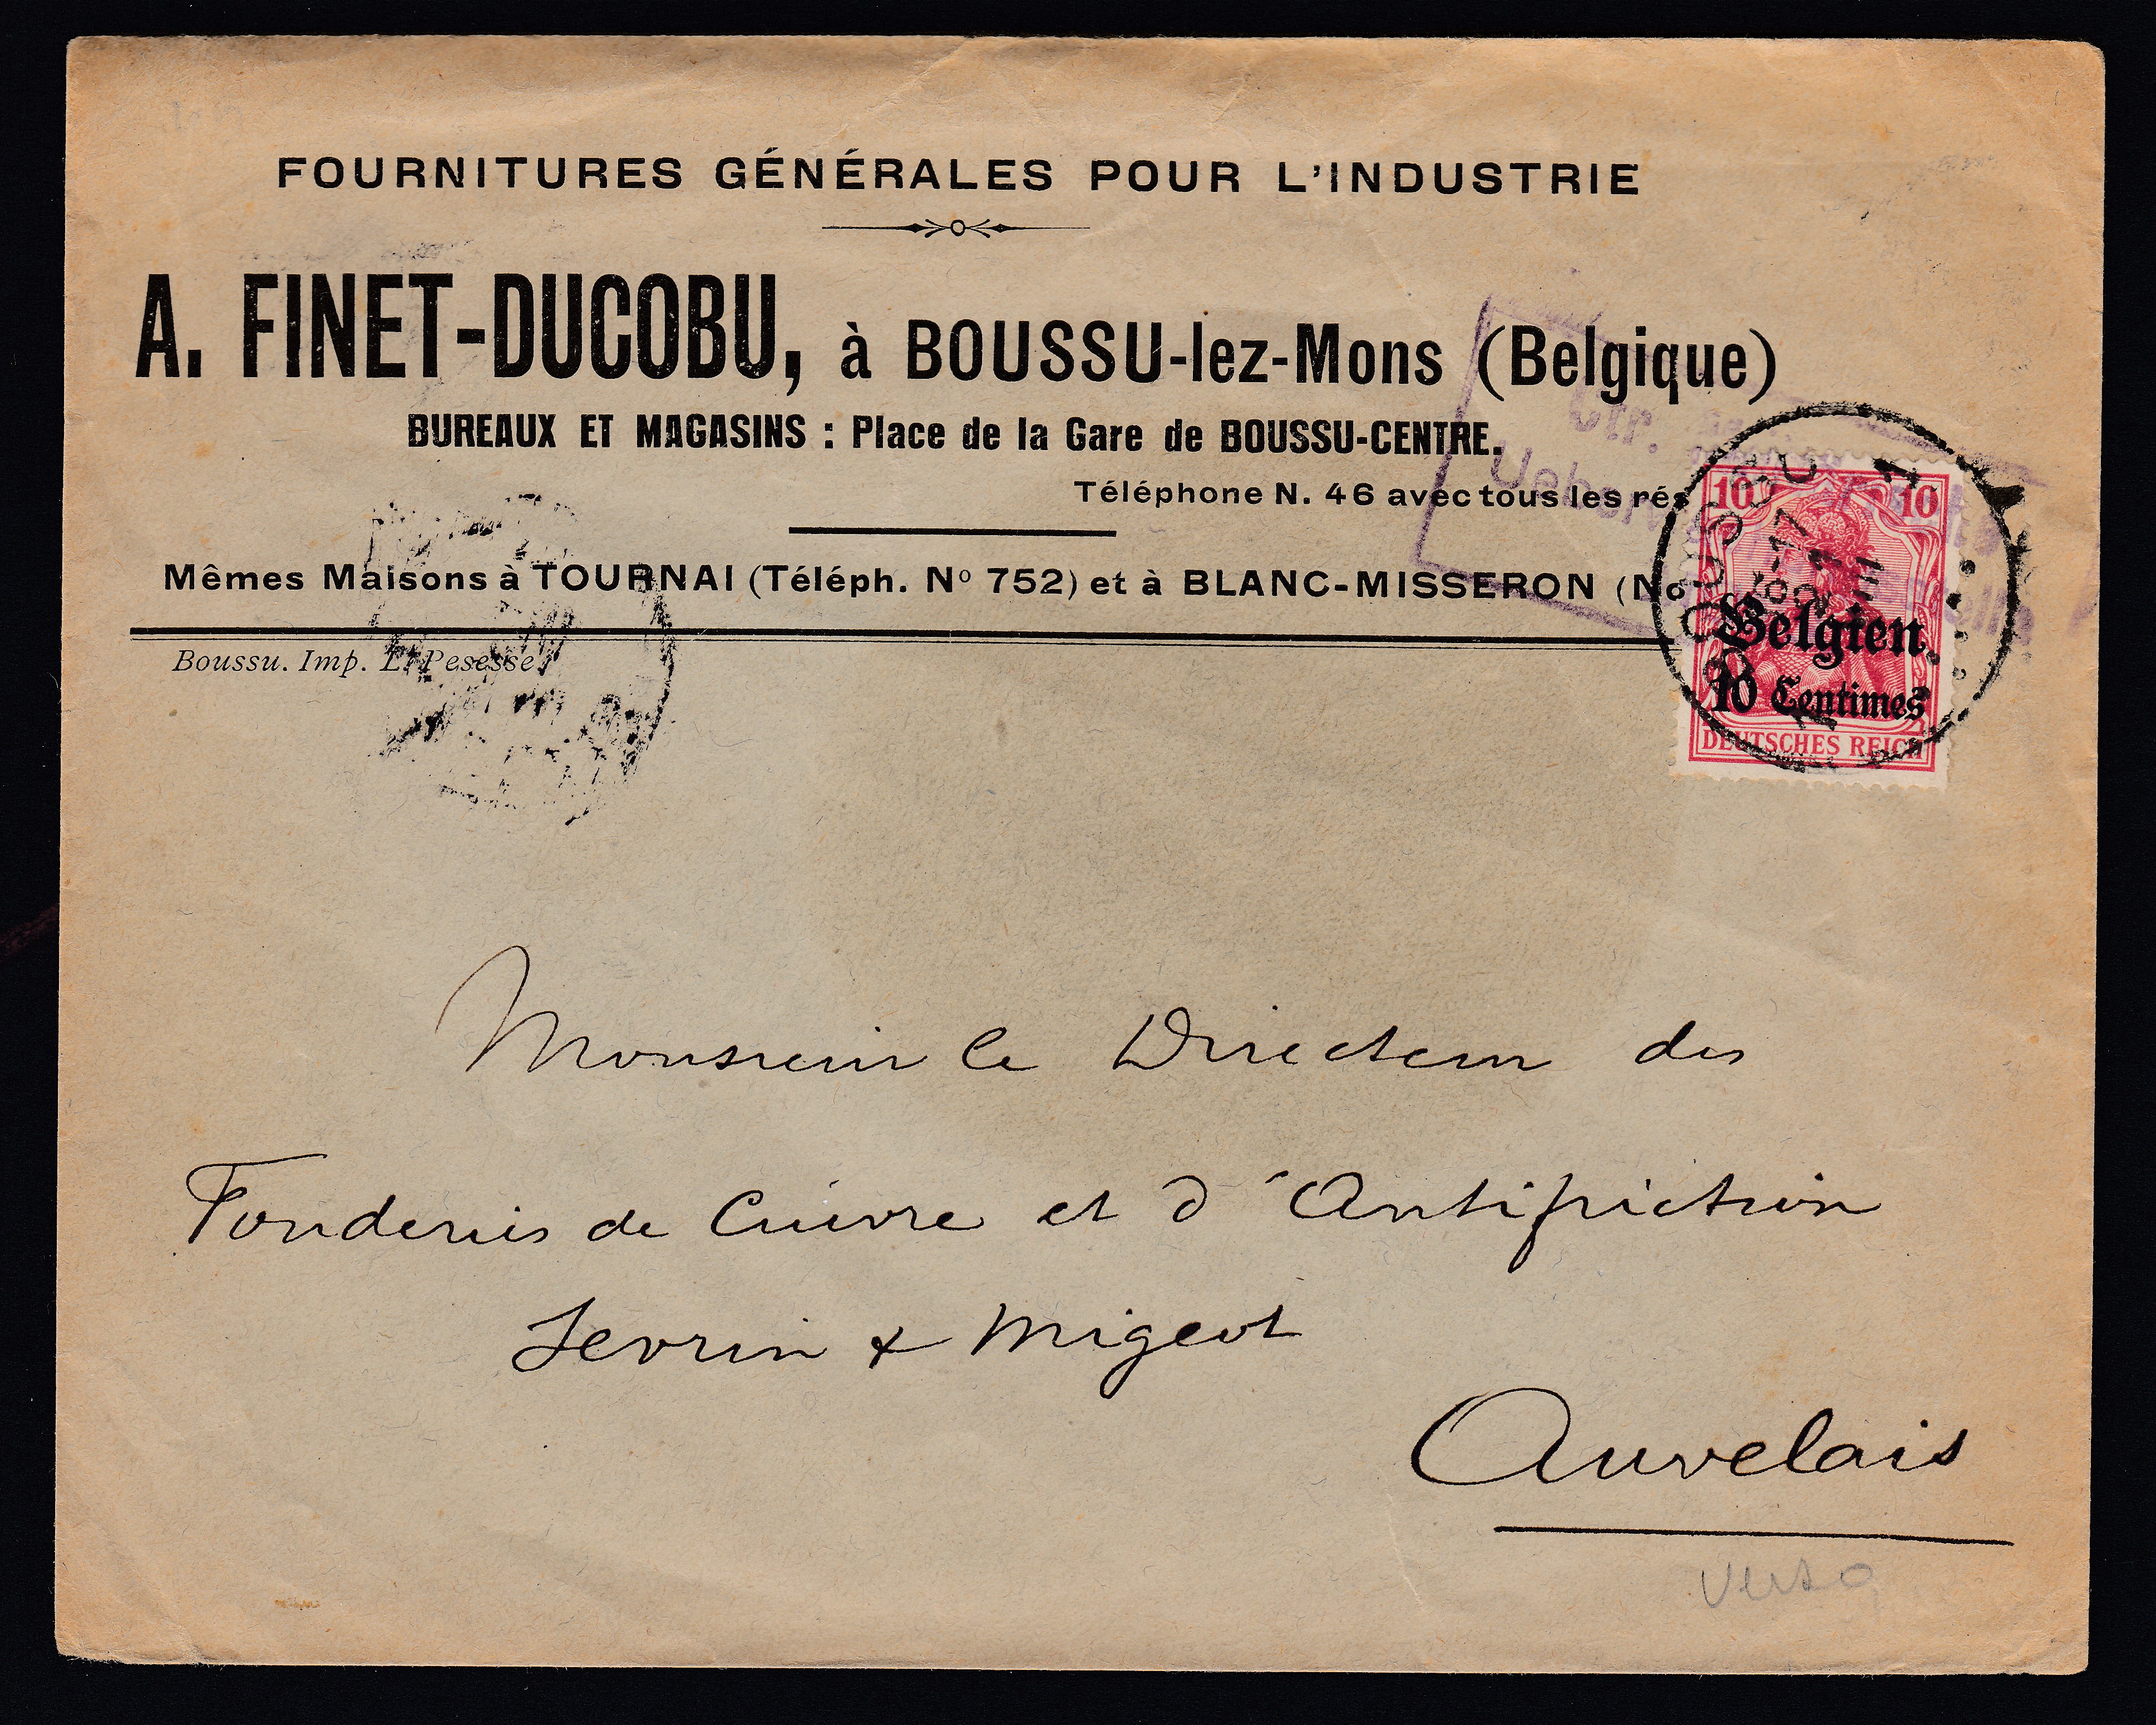 FOURNITURES GÉNÉRALES POUR L'INDUSTRIE
A. FINET-DUCOBU, à BOUSSU-lez-Mons (Belgique)
BUREAUX ET MAGASINS : Place de la Gare de BOUSSU-CENTRE.
Téléphone N. 46 avec tous les rés
Mêmes Maisons à TOURNAI (Téléph. Nº 752) et à BLANC-MISSERON (No
Boussu. Imp. L. Pesesse.
10 10
Belgien
10 Centimes
DEUTSCHES REICH
BOUSSU
Monsieur le Directeur des
Fonderies de Cuivre et d'Antifriction
Sevrin & Migeot
Auvelais
Verso